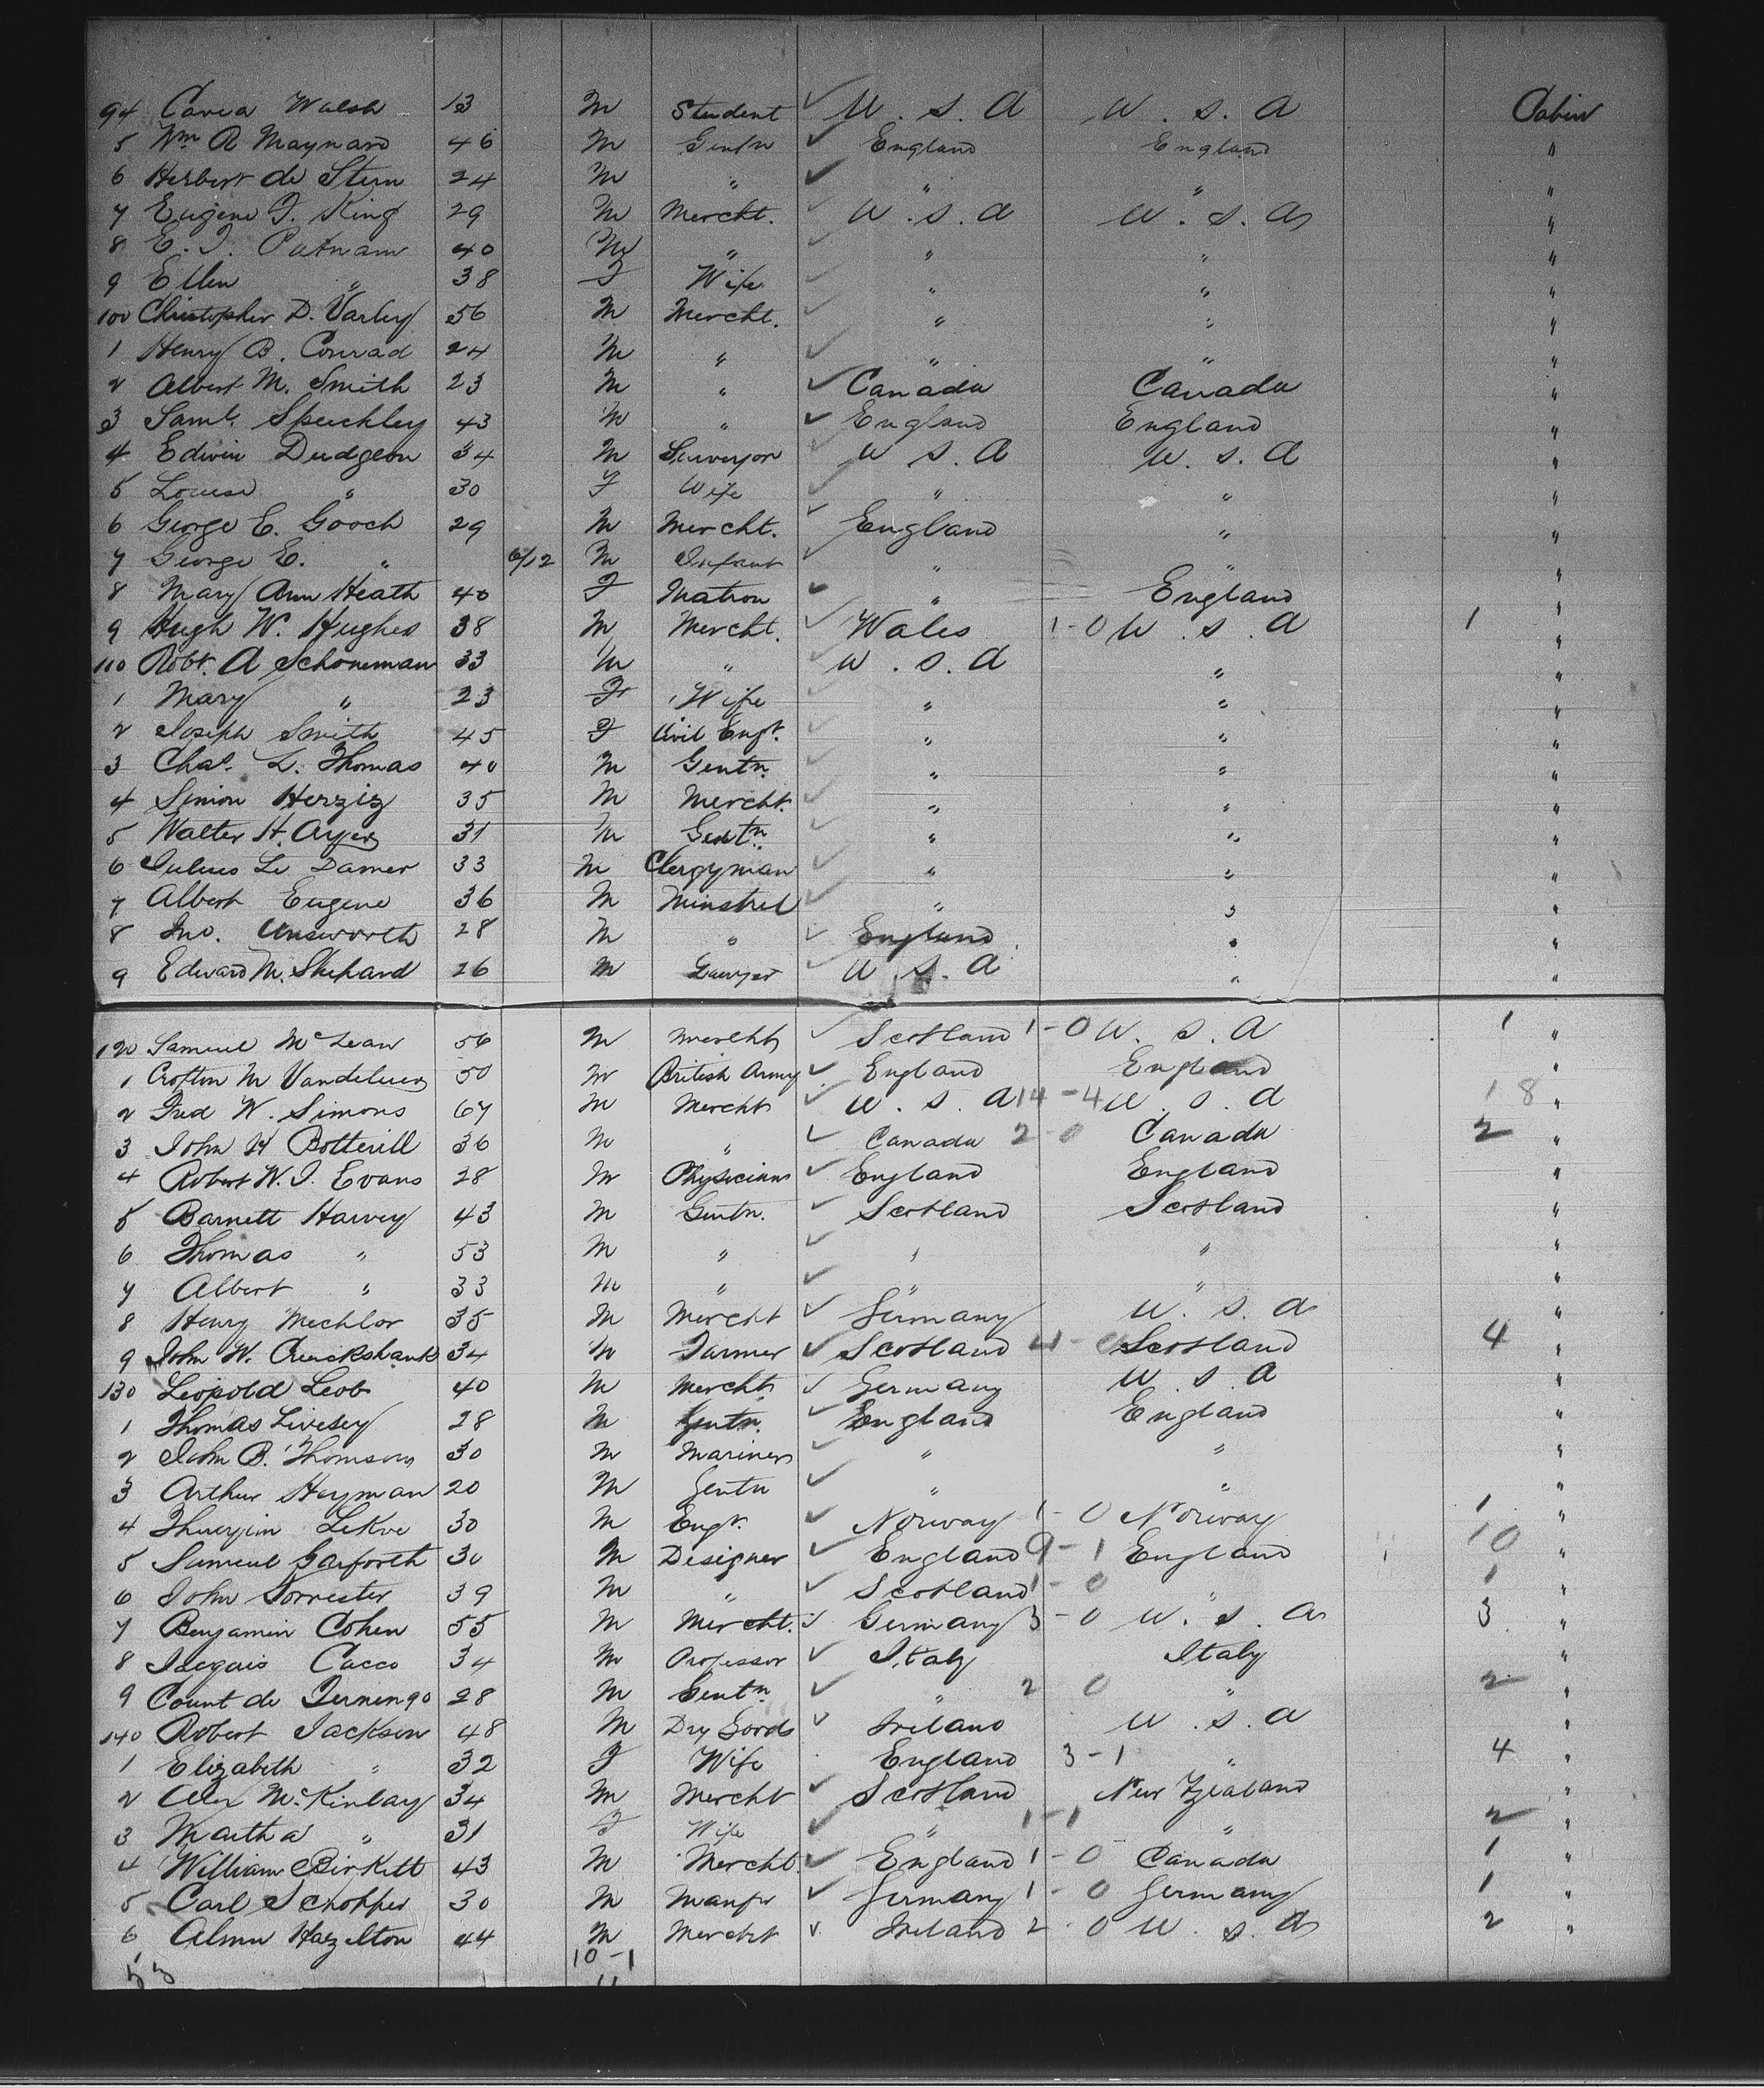 94 Walsh 13 M Student ✓ U. S. A U. S. A Cabin
5 Wm R Maynard 46 M Gentn ✓ England England "
6 Herbert de Stern 24 M " ✓ " " "
7 Eugene F. King 29 M Mercht. ✓ U. S. A U. S. A "
8 E. T. Putnam 40 M " ✓ " " "
9 Ellen " 38 F Wife ✓ " " "
100 Christopher D. Varley 56 M Mercht. ✓ " " "
1 Henry B. Conrad 24 M " ✓ " " "
2 Albert M. Smith 23 M " ✓ Canada Canada "
3 Saml. Speechley 43 M " ✓ England England "
4 Edwin Dudgeon 34 M Surveyor ✓ U S. A U. S. A "
5 Louise " 30 F Wife ✓ " " "
6 George E. Gooch 29 M Mercht. ✓ England " "
7 George E. " 6/12 M Infant ✓ " " "
8 Mary Ann Heath 40 F Matron ✓ " England "
9 Hugh W. Hughes 38 M Mercht. ✓ Wales 1-0 U. S. A 1 "
110 Robt. A Schoneman 33 M " ✓ U. S. A " "
1 Mary " 23 F Wife ✓ " " "
2 Joseph Smith 45 F Civil Engr. ✓ " " "
3 Chas. L. Thomas 40 M Gentn. ✓ " " "
4 Simon Herzig 35 M Mercht. ✓ " " "
5 Walter H. Ayers 31 M Gentn. ✓ " " "
6 Julius Le Damer 33 M Clergyman ✓ " " "
7 Albert Eugene 36 M Minstrel ✓ " " "
8 Jno. Unsworth 28 M " ✓ England " "
9 Edward M. Shepard 26 M Lawyer ✓ U S. A " "
120 Samuel McLean 56 M Mercht ✓ Scotland 1-0 U. S. A 1 "
1 Crofton M Vandeleur 50 M British Army ✓ England England "
2 Fred W. Simons 67 M Mercht ✓ U. S. A 14-4 U. S. A 18 "
3 John H Botterill 36 M " ✓ Canada 2-0 Canada 2 "
4 Robert W. J. Evans 28 M Physician ✓ England England "
5 Barnett Harvey 43 M Gentn. ✓ Scotland Scotland "
6 Thomas " 53 M " ✓ " " "
7 Albert " 33 M " ✓ " " "
8 Henry Mechlor 35 M Mercht ✓ Germany U. S. A "
9 John W. Cruickshank 34 M Farmer ✓ Scotland 4-0 Scotland 4 "
130 Leopold Leob 40 M Mercht ✓ Germany U. S. A "
1 Thomas Livesey 28 M Gentn. ✓ England England "
2 John B. Thomson 30 M Mariner ✓ " " "
3 Arthur Heyman 20 M Gentn ✓ " " "
4 LeKve 30 M Engr. ✓ Norway 1-0 Norway 1 "
5 Samuel Garforth 30 M Designer ✓ England 9-1 England 10 "
6 John Forrester 39 M " ✓ Scotland 1-0 " 1 "
7 Benjamin Cohen 55 M Mercht. ✓ Germany 3-0 U. S. A 3 "
8 Cacco 34 M Professor ✓ Italy Italy "
9 Count de 28 M Gentn ✓ " 2 0 " 2 "
140 Robert Jackson 48 M Dry Goods ✓ Ireland U. S. A "
1 Elizabeth " 32 F Wife England 3-1 " 4 "
2 Alex McKinlay 34 M Mercht ✓ Scotland New Zealand "
3 Martha " 31 F Wife ✓ " 1-1 " 2 "
4 William Birkett 43 M Mercht ✓ England 1-0 Canada 1 "
5 Carl Schopper 30 M Manfr ✓ Germany 1-0 Germany 1 "
6 Hazelton 44 M Mercht ✓ Ireland 2 0 U. S. A 2 "
53 10-1
11